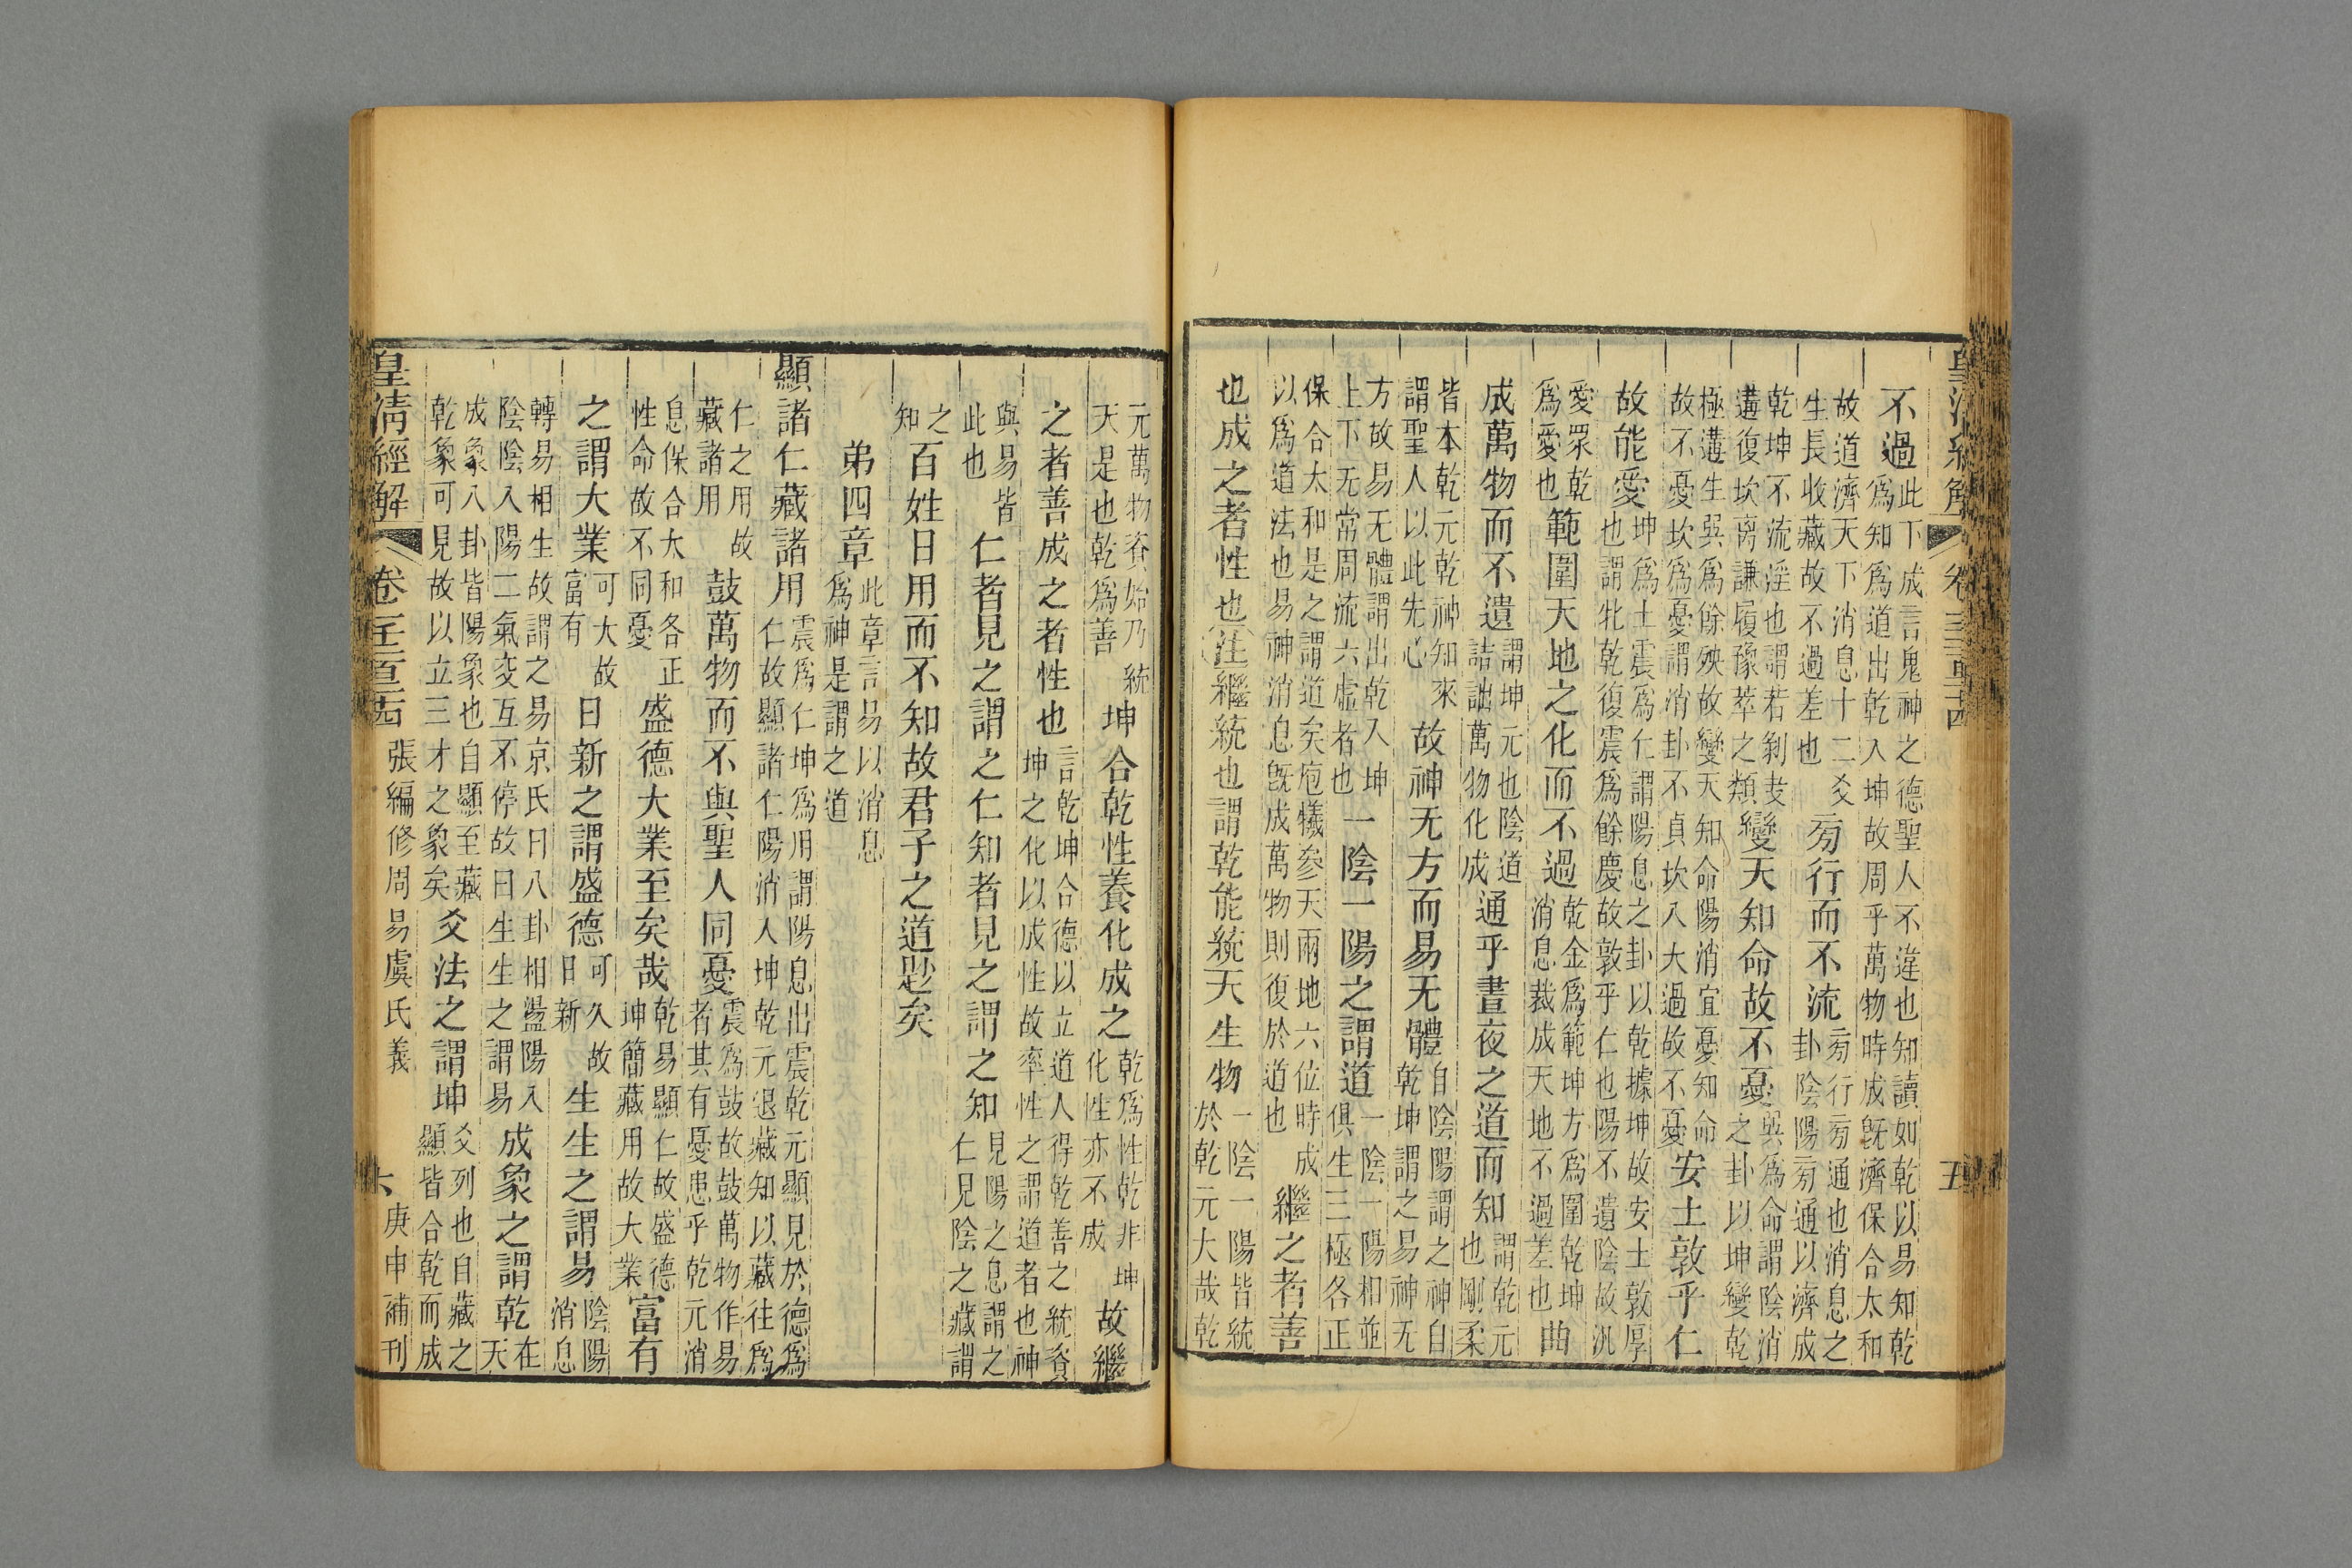 皇清經解 卷 五
不過此下成言鬼神之德聖人不違也知讀如乾以易知乾
爲知爲道出乾入坤故周乎萬物時成旣濟保合太和
故道濟天下消息十二爻
生長收藏故不過差也 㫄行而不流㫄行㫄通也消息之
卦陰陽㫄通以濟成
乾坤不流淫也謂若剝夬
遘復坎离謙履豫萃之類變天知命故不憂巽爲命謂陰消
之卦以坤變乾
極遘生巽爲餘殃故變天知命陽消宜憂知命
故不憂坎爲憂謂消卦不貞坎入大過故不憂安土敦乎仁
故能愛坤爲土震爲仁謂陽息之卦以乾據坤故安土敦厚
也謂牝乾復震爲餘慶故敦乎仁也陽不遺陰故汎
愛眾乾
爲愛也範圍天地之化而不過乾金爲範坤方爲圍乾坤
消息裁成天地不過差也曲
成萬物而不遺謂坤元也陰道
詰詘萬物化成通乎晝夜之道而知謂乾元
也剛柔
皆本乾元乾神知來
謂聖人以此先心故神无方而易无體自陰陽謂之神自
乾坤謂之易神无
方故易无體謂出乾入坤
上下无常周流六虛者也一陰一陽之謂道一陰一陽相並
俱生三極各正
保合大和是之謂道矣庖犧參天兩地六位時成
以爲道法也易神消息旣成萬物則復於道也繼之者善
也成之者性也注繼統也謂乾能統天生物一陰一陽皆統
於乾元大哉乾
元萬物資始乃統
天是也乾爲善坤合乾性養化成之乾爲性乾非坤
化性亦不成故繼
之者善成之者性也言乾坤合德以立道人得乾善之統資
坤之化以成性故率性之謂道者也神
與易皆
此也仁者見之謂之仁知者見之謂之知見陽之息謂之
仁見陰之藏謂
之
知百姓日用而不知故君子之道尟矣
弟四章此章言易以消息
爲神是謂之道
顯諸仁藏諸用震爲仁坤爲用謂陽息出震乾元顯見於德爲
仁故顯諸仁陽消入坤乾元退藏知以藏往爲
仁之用故
藏諸用鼓萬物而不與聖人同憂震爲鼓故鼓萬物作易
者其有憂患乎乾元消
息保合太和各正
性命故不同憂盛德大業至矣哉乾易顯仁故盛德
坤簡藏用故大業富有
之謂大業可大故
富有日新之謂盛德可久故
日新生生之謂易陰陽
消息
轉易相生故謂之易京氏曰八卦相盪陽入
陰陰入陽二氣交互不停故曰生生之謂易成象之謂乾在
天
成象八卦皆陽象也自顯至藏
乾象可見故以立三才之象矣爻法之謂坤爻列也自藏之
顯皆合乾而成
皇淸經解 卷 張編修周易虞氏義 六 庚申補刊